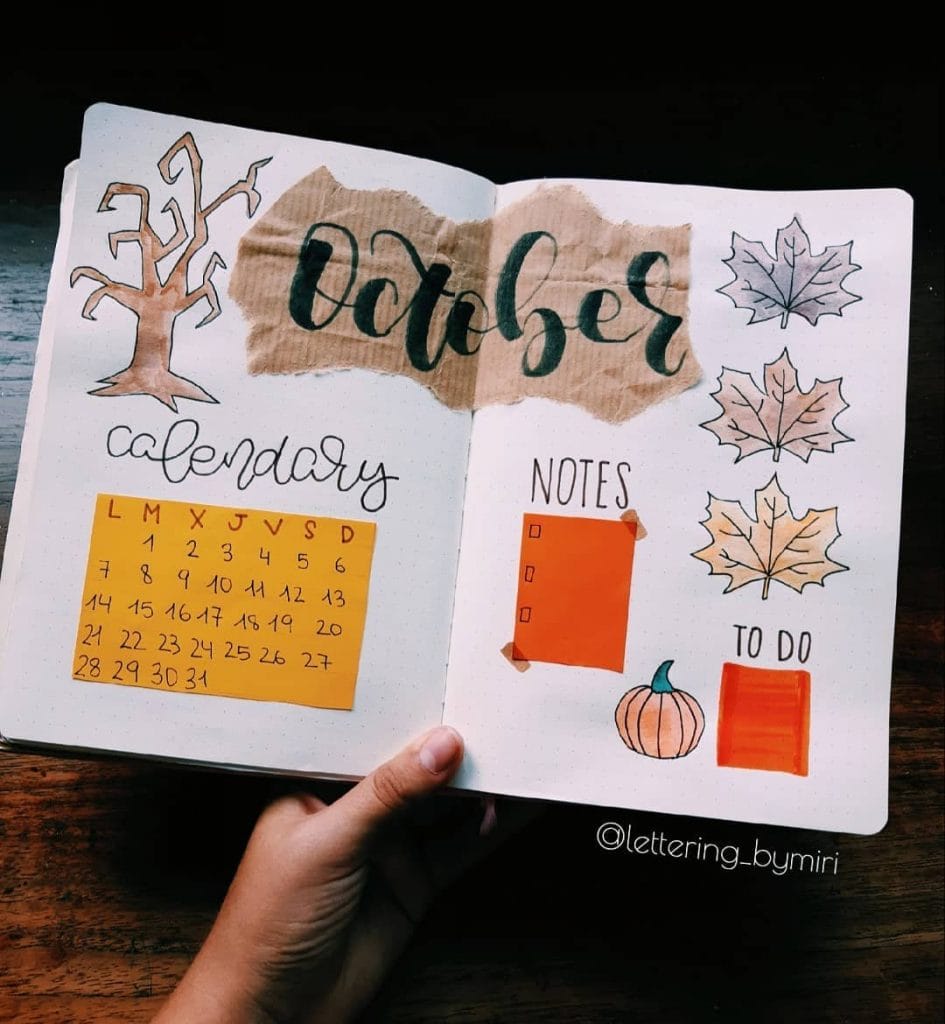 October
calendary
L M X J V S D
1 2 3 4 5 6
7 8 9 10 11 12 13
14 15 16 17 18 19 20
21 22 23 24 25 26 27
28 29 30 31
NOTES
TO DO
@lettering_bymiri